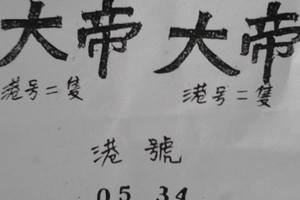 大帝 大帝
港号二隻 港号二隻
港號
05 34